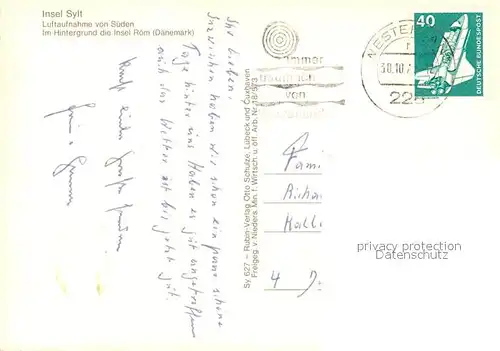 Insel Sylt
Luftaufnahme von Süden
Im Hintergrund die Insel Röm (Dänemark)
Ihr Lieben!
Inzwischen haben wir schon ein paar schöne
Tage hinter uns. Haben es gut angetroffen
auch das Wetter ist bis jetzt gut.
Sy 627 – Rubin-Verlag Otto Schulze, Lübeck und Cuxhaven
Freigeg. v. Nieders. Min. f. Wirtsch. u. öff. Arb. Nr. 18/973
immer
von
WESTER
30.10.7
228
40
DEUTSCHE BUNDESPOST
Fami
Richa
Halle
4 D
privacy protection
Datenschutz